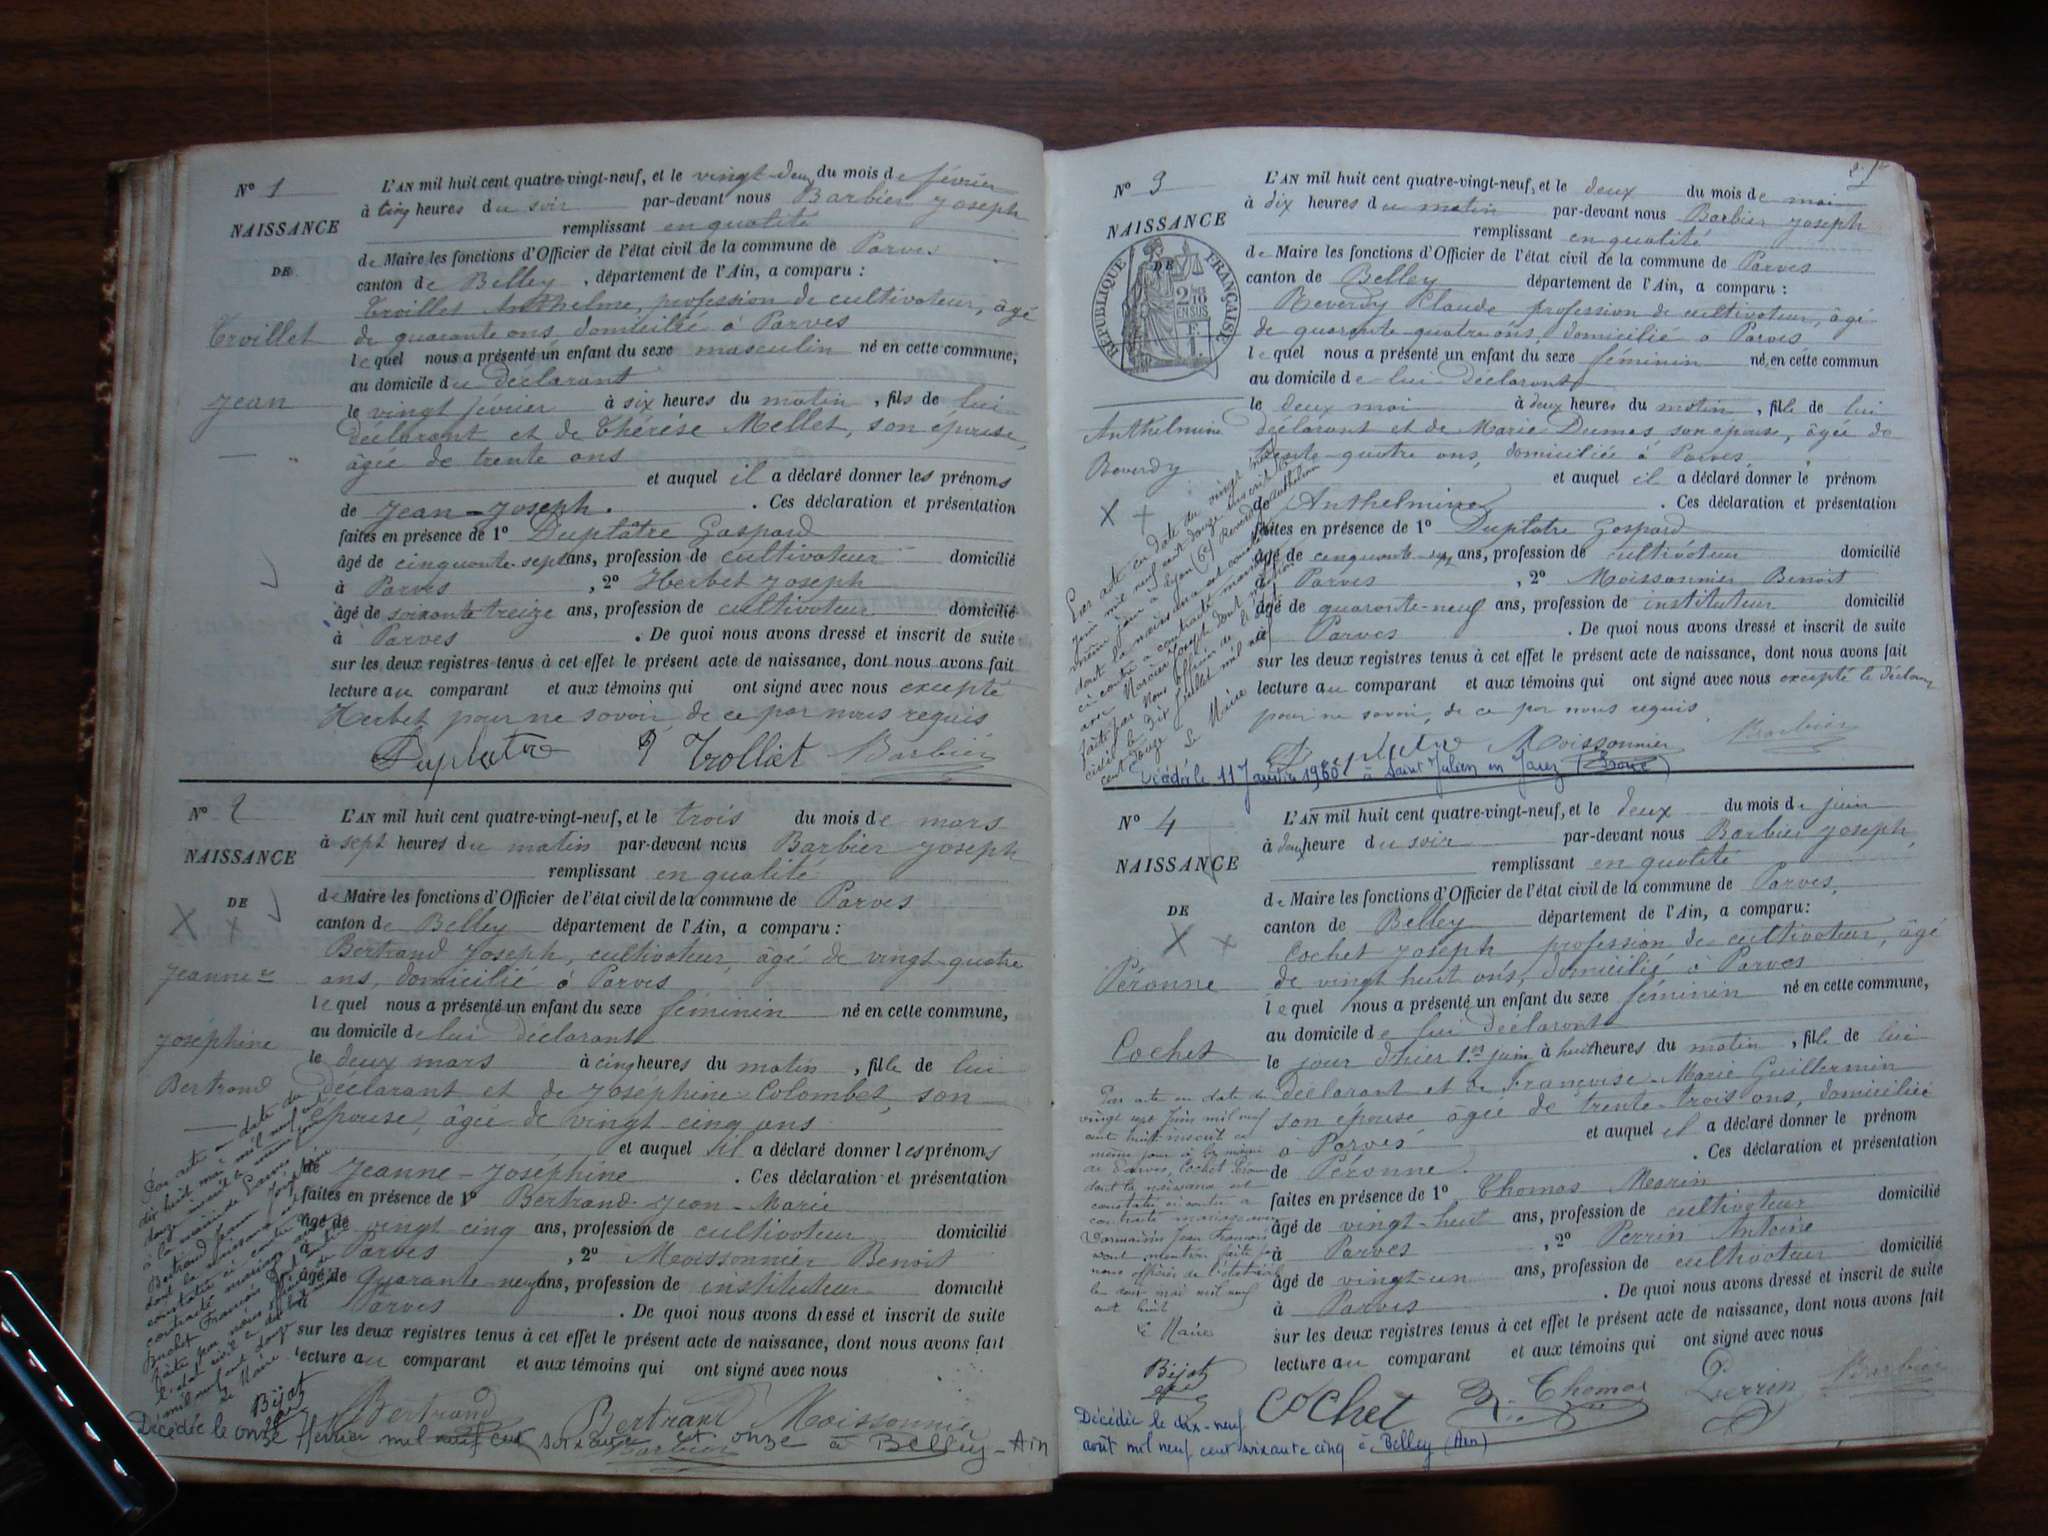 N° 1
NAISSANCE
DE
Trollliet
Jean
L'AN mil huit cent quatre-vingt-neuf, et le vingt-deux du mois de février
à cinq heures du soir par-devant nous Barbier Joseph
remplissant en qualité
de Maire les fonctions d'Officier de l'état civil de la commune de Parves
canton de Belley, département de l'Ain, a comparu :
Anthelme, profession de cultivateur, âgé
de quarante ans, domicilié à Parves
lequel nous a présenté un enfant du sexe masculin né en cette commune,
au domicile du déclarant
le vingt février à six heures du matin, fils de lui
déclarant et de Thérèse Mellet, son épouse,
âgée de trente ans
et auquel il a déclaré donner les prénoms
de Jean-Joseph. Ces déclaration et présentation
faites en présence de 1° Duplatre Gaspard
âgé de cinquante-sept ans, profession de cultivateur domicilié
à Parves, 2° Herbet Joseph
âgé de soixante treize ans, profession de cultivateur domicilié
à Parves. De quoi nous avons dressé et inscrit de suite
sur les deux registres tenus à cet effet le présent acte de naissance, dont nous avons fait
lecture au comparant et aux témoins qui ont signé avec nous excepté
Herbet pour ne savoir, de ce par nous requis
Duplatre Trolliet Barbier
N° 2
NAISSANCE
DE
X X
Jeanne
Joséphine
Bertrand
L'AN mil huit cent quatre-vingt-neuf, et le trois du mois de mars
à sept heures du matin par-devant nous Barbier Joseph
remplissant en qualité
de Maire les fonctions d'Officier de l'état civil de la commune de Parves
canton de Belley département de l'Ain, a comparu :
Bertrand Joseph, cultivateur, âgé de vingt-quatre
ans, domicilié à Parves
lequel nous a présenté un enfant du sexe féminin né en cette commune,
au domicile de lui déclarant
le deux mars à cinq heures du matin, fille de lui
déclarant et de Joséphine Colombet, son
épouse, âgée de vingt-cinq ans
et auquel il a déclaré donner les prénoms
de Jeanne-Joséphine. Ces déclaration et présentation
faites en présence de 1° Bertrand Jean-Marie
âgé de vingt cinq ans, profession de cultivateur domicilié
à Parves, 2° Moissonnier Benoit
âgé de quarante-neuf ans, profession de instituteur domicilié
à Parves. De quoi nous avons dressé et inscrit de suite
sur les deux registres tenus à cet effet le présent acte de naissance, dont nous avons fait
lecture au comparant et aux témoins qui ont signé avec nous
Par acte en date du
dix huit mai mil neuf cent
douze inscrit le même jour
à la mairie de Parves
Bertrand Jeanne Joséphine
dont la naissance est
constatée ci contre a
contracté mariage avec
François dont mention
faite par nous officier de
l'état civil le dix huit mai
mil neuf cent douze
Le Maire
Bijot
Bertrand Bertrand Moissonnier
Barbier
Décédée le onze février mil neuf cent soixante et onze à Belley-Ain
N° 3
NAISSANCE
DE
RÉPUBLIQUE FRANÇAISE
2/10 EN SUS
Anthelmine
Reverdy
X +
L'AN mil huit cent quatre-vingt-neuf, et le deux du mois de mai
à dix heures du matin par-devant nous Barbier Joseph
remplissant en qualité
de Maire les fonctions d'Officier de l'état civil de la commune de Parves
canton de Belley département de l'Ain, a comparu :
Reverdy Claude profession de cultivateur, âgé
de quarante quatre ans, domicilié à Parves
lequel nous a présenté un enfant du sexe féminin né en cette commun
au domicile de lui déclarant
le deux mai à deux heures du matin, fille de lui
déclarant et de Marie Dumas son épouse, âgée de
trente-quatre ans, domiciliée à Parves,
et auquel il a déclaré donner le prénom
de Anthelmine. Ces déclaration et présentation
faites en présence de 1° Duplatre Gaspard
âgé de cinquante-sept ans, profession de cultivateur domicilié
à Parves, 2° Moissonnier Benoit
âgé de quarante-neuf ans, profession de instituteur domicilié
à Parves. De quoi nous avons dressé et inscrit de suite
sur les deux registres tenus à cet effet le présent acte de naissance, dont nous avons fait
lecture au comparant et aux témoins qui ont signé avec nous excepté le déclarant
pour ne savoir, de ce par nous requis
Par acte en date du vingt
juin mil neuf cent douze inscrit le
même jour à Lyon (6e) Reverdy Anthelmine
dont la naissance est constatée
ci contre a contracté mariage
avec Mercier Joseph dont mention
faite par nous officier de l'état
civil le dix juillet mil neuf
cent douze Le Maire
Duplatre Moissonnier Barbier
Décédé le 11 Janvier 1960 à Saint Julien en Jarez (Loire)
N° 4
NAISSANCE
DE
X X
Péronne
Cochet
L'AN mil huit cent quatre-vingt-neuf, et le deux du mois de juin
à deux heure du soir par-devant nous Barbier Joseph,
remplissant en qualité
de Maire les fonctions d'Officier de l'état civil de la commune de Parves,
canton de Belley département de l'Ain, a comparu:
Cochet Joseph profession de cultivateur, âgé
de vingt huit ans, domicilié à Parves
lequel nous a présenté un enfant du sexe féminin né en cette commune,
au domicile de lui déclarant
le jour d'hier 1er juin à huit heures du matin, fille de lui
déclarant et de Françoise-Marie Guillermin
son épouse âgée de trente-trois ans, domiciliée
à Parves et auquel il a déclaré donner le prénom
de Péronne. Ces déclaration et présentation
faites en présence de 1° Thomas Marin
âgé de vingt-huit ans, profession de cultivateur domicilié
à Parves, 2° Perrin Antoine
âgé de vingt-un ans, profession de cultivateur domicilié
à Parves. De quoi nous avons dressé et inscrit de suite
sur les deux registres tenus à cet effet le présent acte de naissance, dont nous avons fait
lecture au comparant et aux témoins qui ont signé avec nous
Par acte en date du
vingt juin mil neuf
cent huit inscrit ce
même jour à la mairie
de Parves, Cochet
dont la naissance est
constatée ci contre a
contracté mariage avec
Jean François
dont mention faite par
nous officier de l'état civil
mil neuf
cent huit
Le Maire
Bijot
Cochet Thomas Perrin Barbier
Décédée le dix-neuf
août mil neuf cent soixante cinq à Belley (Ain)